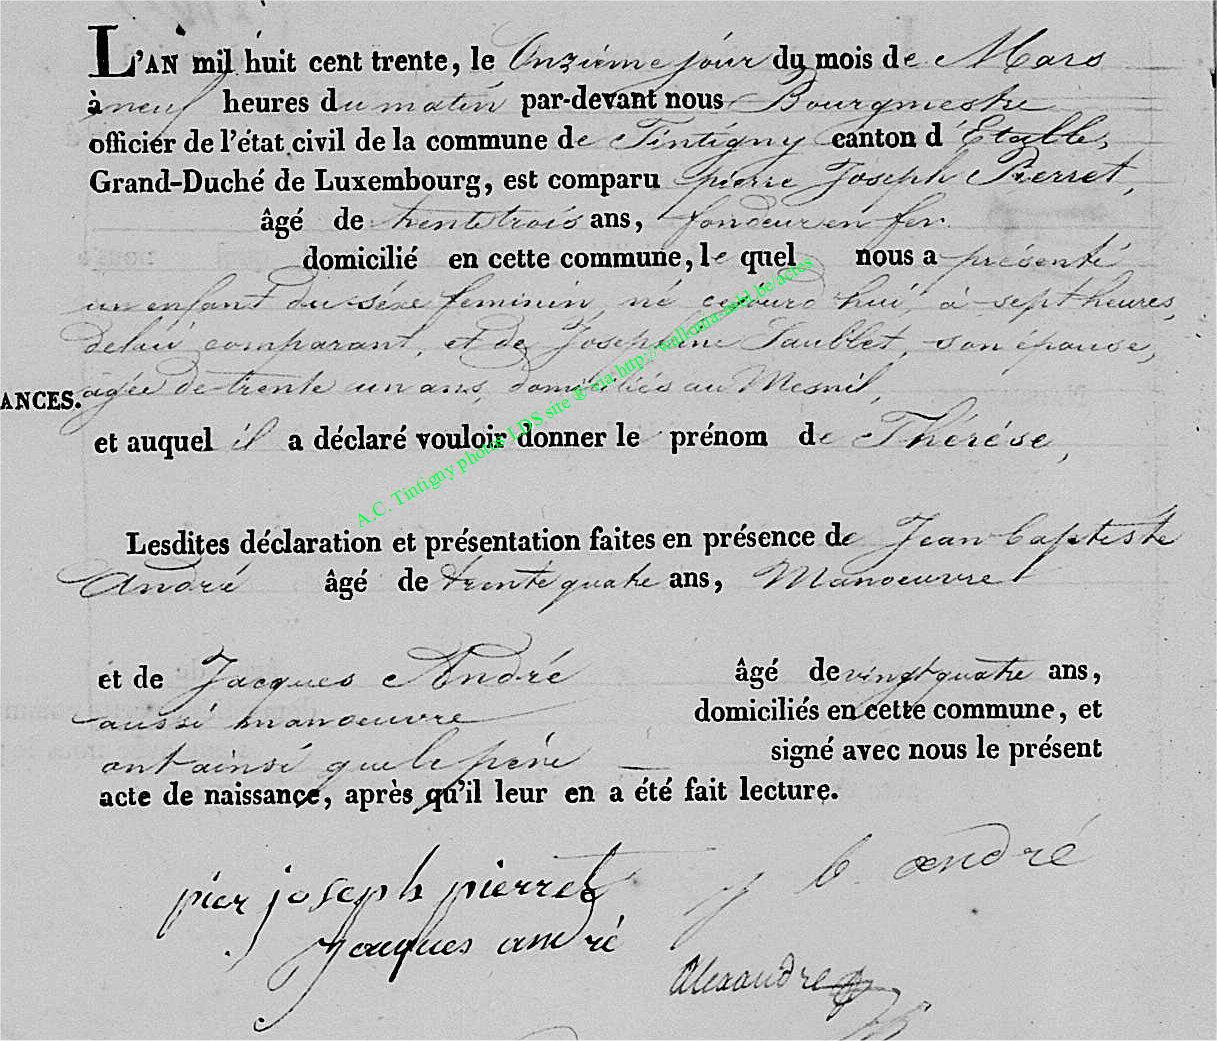 L'AN mil huit cent trente, le Onziéme jour du mois de Mars
à neuf heures du matin par-devant nous Bourgmestre
officier de l'état civil de la commune de Tintigny canton d'Etalle,
Grand-Duché de Luxembourg, est comparu pierre Joseph Pierret,
âgé de trente trois ans, fondeur en fer.
domicilié en cette commune, le quel nous a présenté
un enfant du séxe feminin, né cejourd'hui, à sept heures,
de lui comparant, et de Josephine Saublet, son epouse,
ANCES. agée de trente un ans, domiciliés au Mesnil,
et auquel il a déclaré vouloir donner le prénom de Thérése,
A.C. Tintigny photos LDS site ® via http://wallonia-asbl.be/actes
Lesdites déclaration et présentation faites en présence de Jean baptiste
André âgé de trente quatre ans, Manoeuvre
et de Jacques André âgé de vingt quatre ans,
aussi manoeuvre domiciliés en cette commune, et
ont ainsi que le pére signé avec nous le présent
acte de naissance, après qu'il leur en a été fait lecture.
pier joseph pierret j b andré
jacques andré
Alexandre